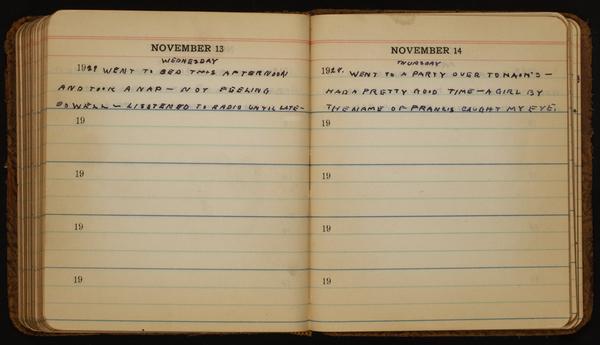 NOVEMBER 13
WEDNESDAY
1929 WENT TO BED THIS AFTERNOON
AND TOOK A NAP — NOT FEELING
SO WELL — LISTENED TO RADIO UNTIL LATE-
19
19
19
19
NOVEMBER 14
THURSDAY
1929. WENT TO A PARTY OVER TO
HAD A PRETTY GOOD TIME — A GIRL BY
THE NAME OF FRANCIS CAUGHT MY EYE.
19
19
19
19